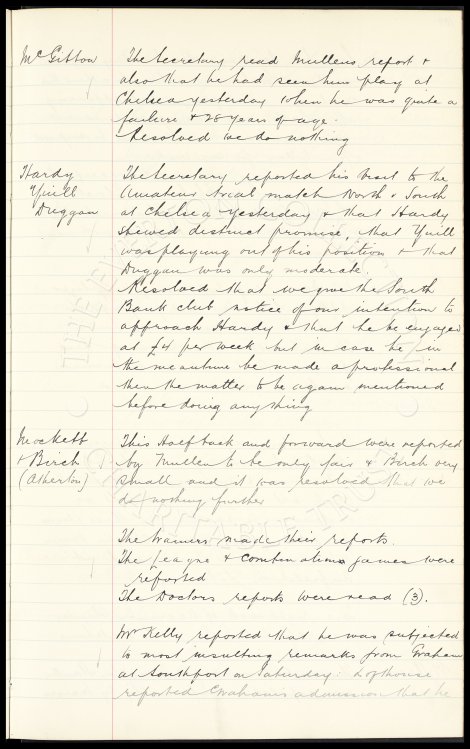 McGibbon
The Secretary read Mullens report &
also that he had seen him play at
Chelsea yesterday when he was quite a
failure & 28 years of age.
Resolved we do nothing
Hardy
Yuill
Duggan
The Secretary reported his visit to the
Amateur trial match North v South
at Chelsea yesterday & that Hardy
shewed distinct promise, that Yuill
was playing out of his position & that
Duggan was only moderate.
Resolved that we give the South
Bank club notice of our intention to
approach Hardy & that he be engaged
at £4 per week but in case he in
the meantime be made a professional
then the matter to be again mentioned
before doing anything
Mockett
& Birch
(Atherton)
This Half back and forward were reported
by Mullen to be only fair & Birch very
small and it was resolved that we
do nothing further
The trainers made their reports.
The League & Combination games were
reported
The Doctors reports were read (3).
Mr Kelly reported that he was subjected
to most insulting remarks from Graham
at Southport on Saturday: Lofthouse
reported Graham's admission that he
THE EVERTON
CHARITABLE TRUST